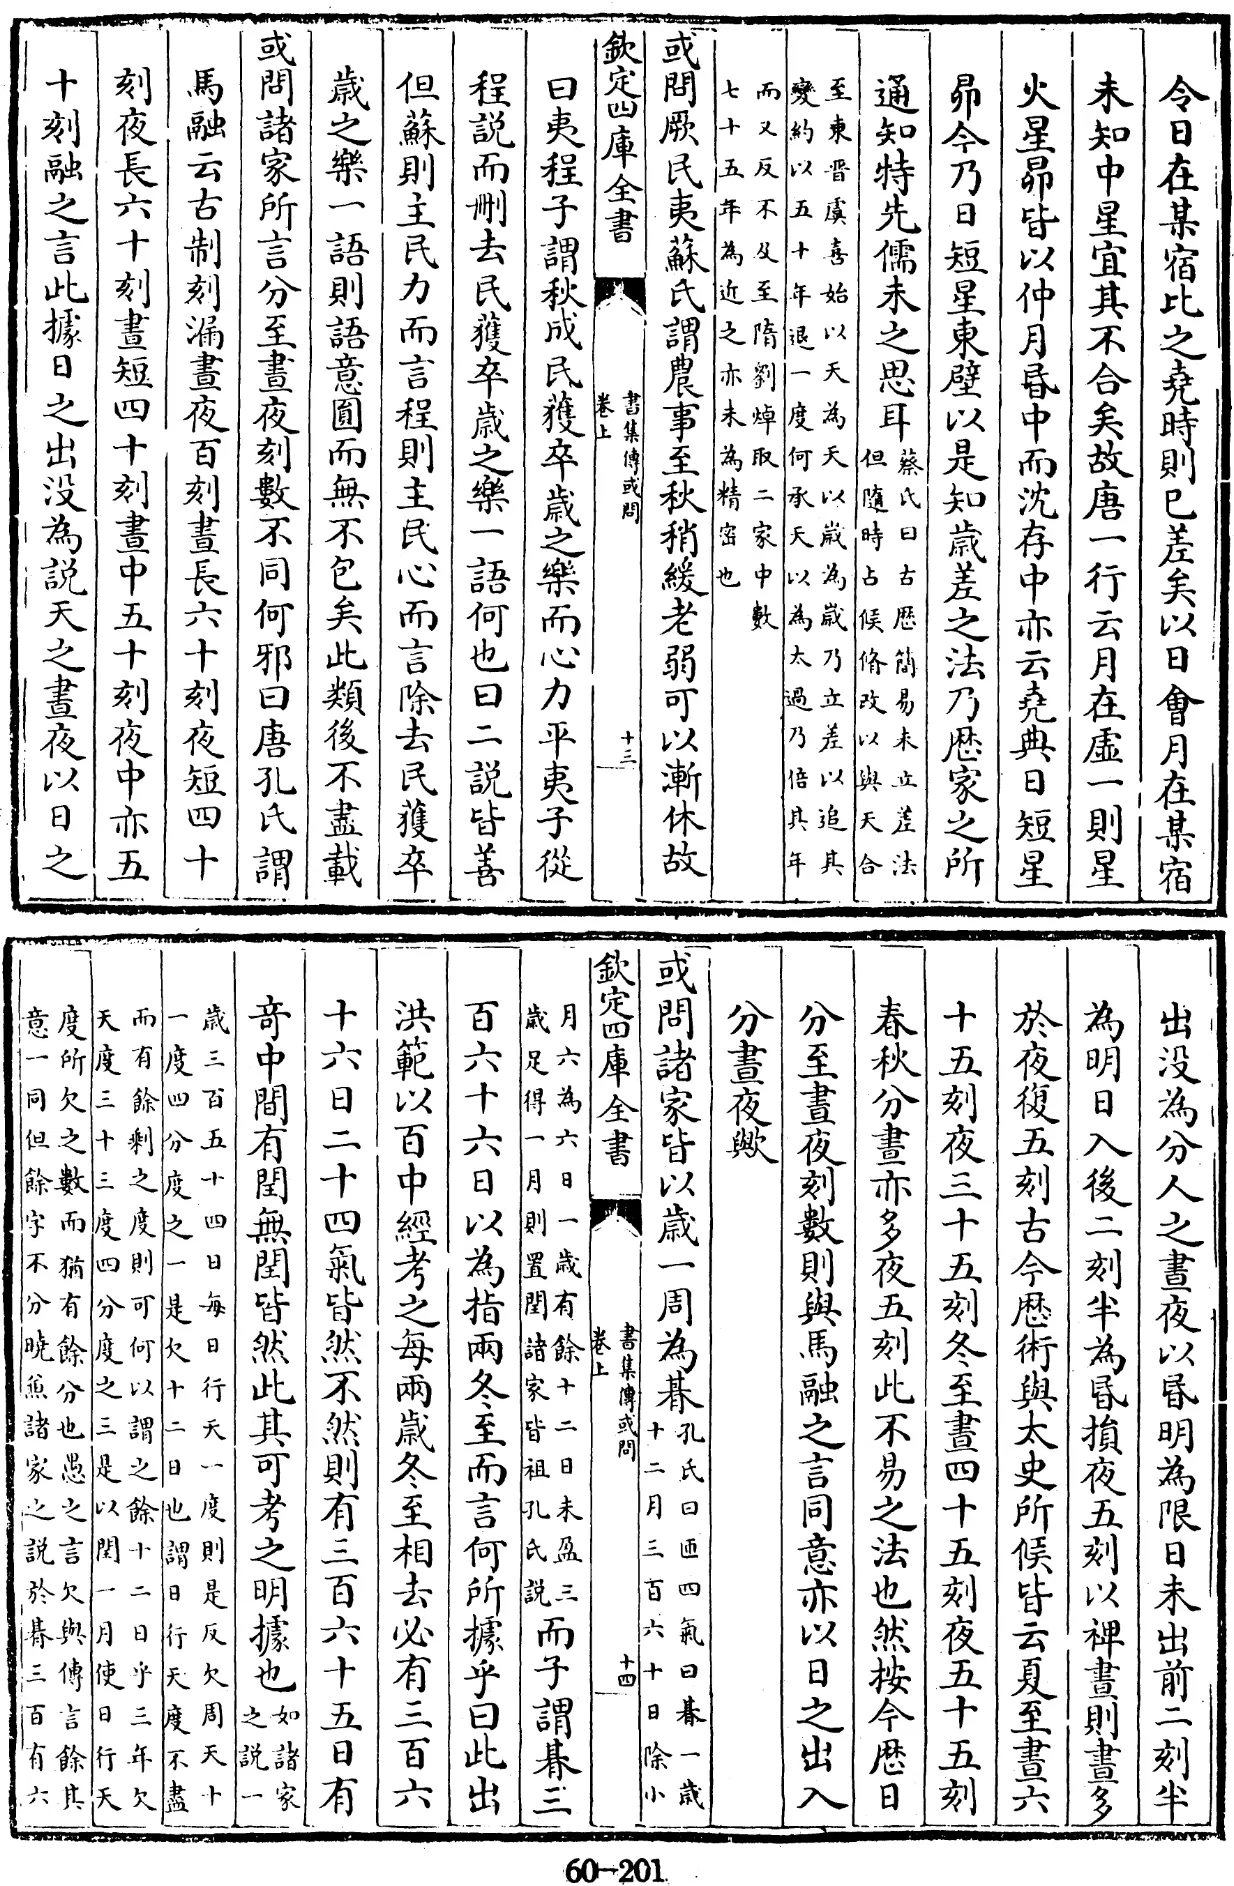 令日在某宿比之堯時則已差矣以日會月在某宿
未知中星宜其不合矣故唐一行云月在虛一則星
火星昴皆以仲月昏中而沈存中亦云堯典日短星
昴今乃日短星東壁以是知歳差之法乃厯家之所
通知特先儒未之思耳蔡氏曰古厯簡易未立差法
但隨時占候脩改以與天合
至東晉虞喜始以天為天以歳為歳乃立差以追其
變約以五十年退一度何承天以為太過乃倍其年
而又反不及至隋劉焯取二家中數
七十五年為近之亦未為精密也
或問厥民夷蘇氏謂農事至秋稍緩老弱可以漸休故
欽定四庫全書
書集傳或問
卷上
十三
曰夷程子謂秋成民獲卒歳之樂而心力平夷子從
程說而刪去民獲卒歳之樂一語何也曰二說皆善
但蘇則主民力而言程則主民心而言除去民獲卒
歳之樂一語則語意圓而無不包矣此類後不盡載
或問諸家所言分至晝夜刻數不同何邪曰唐孔氏謂
馬融云古制刻漏晝夜百刻晝長六十刻夜短四十
刻夜長六十刻晝短四十刻晝中五十刻夜中亦五
十刻融之言此據日之出没為説天之晝夜以日之
出没為分人之晝夜以昏明為限日未出前二刻半
為明日入後二刻半為昏損夜五刻以裨晝則晝多
於夜復五刻古今厯術與太史所候皆云夏至晝六
十五刻夜三十五刻冬至晝四十五刻夜五十五刻
春秋分晝亦多夜五刻此不易之法也然按今厯日
分至晝夜刻數則與馬融之言同意亦以日之出入
分晝夜歟
或問諸家皆以歳一周為朞孔氏曰匝四氣曰朞一歳
十二月三百六十日除小
欽定四庫全書
書集傳或問
卷上
十四
月六為六日一歳有餘十二日未盈三
歳足得一月則置閏諸家皆祖孔氏説而子謂朞三
百六十六日以為指兩冬至而言何所據乎曰此出
洪範以百中經考之每兩歳冬至相去必有三百六
十六日二十四氣皆然不然則有三百六十五日有
竒中間有閏無閏皆然此其可考之明據也如諸家
之説一
歳三百五十四日每日行天一度則是反欠周天十
一度四分度之一是欠十二日也謂日行天度不盡
而有餘剩之度則可何以謂之餘十二日乎三年欠
天度三十三度四分度之三是以閏一月使日行天
度所欠之數而猶有餘分也愚之言欠與傳言餘其
意一同但餘字不分曉烝諸家之説於朞三百有六
60-201